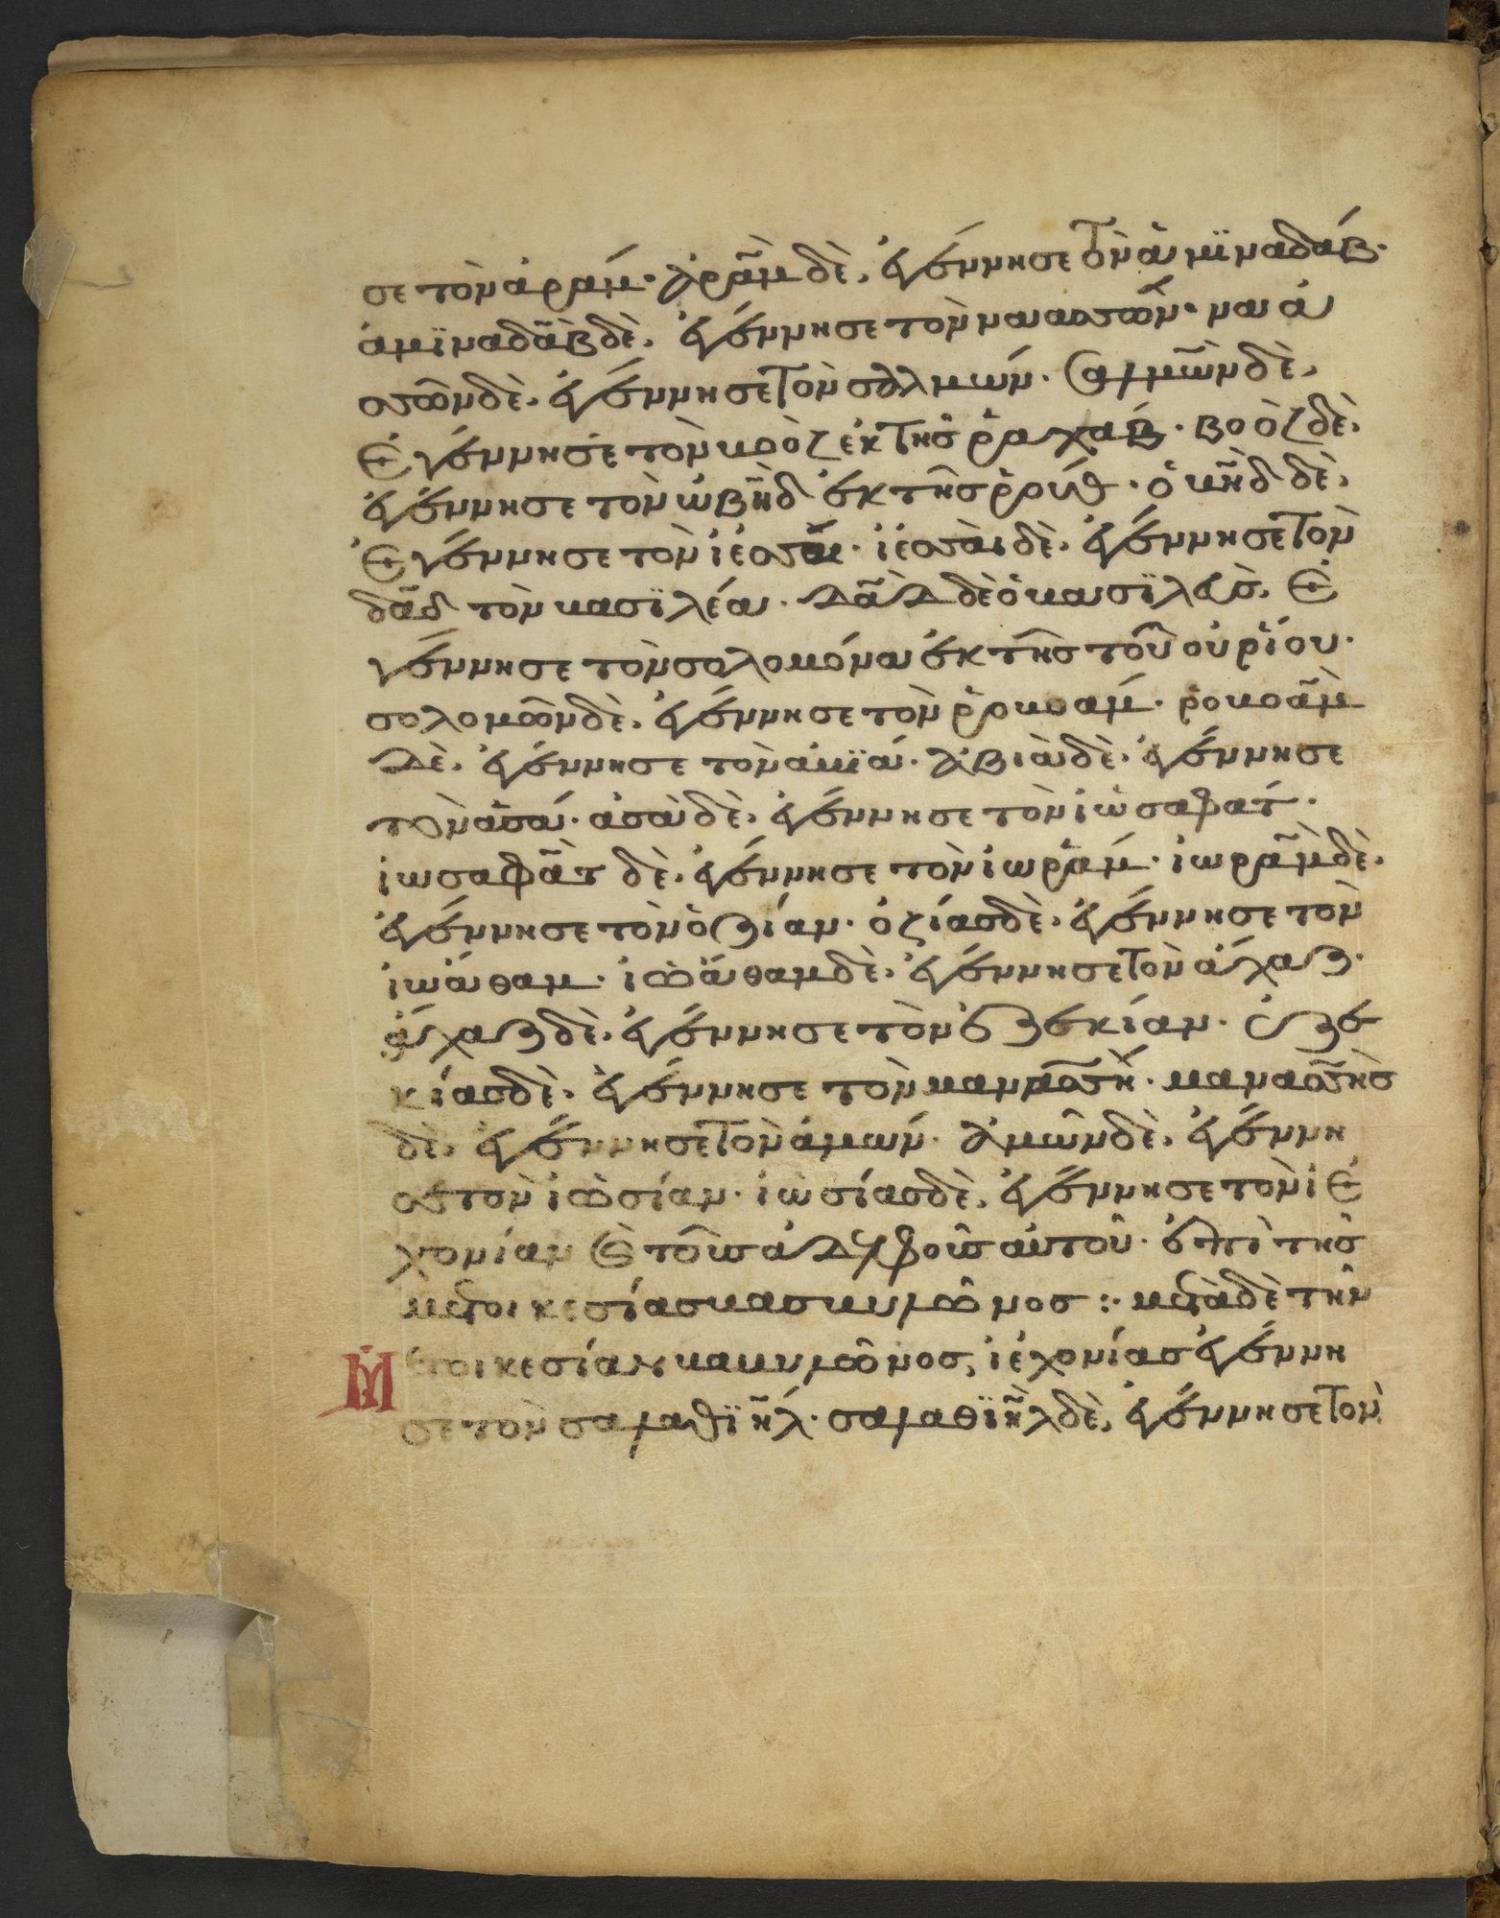 σε τὸν ἀράμ· ἀρὰμ δὲ, ἐγέννησε τὸν ἀμϊναδάβ·
ἀμϊναδὰβ δὲ, ἐγέννησε τὸν ναασσών· ναα
σσὼν δὲ, ἐγέννησε τὸν σαλμών· Σαλμὼν δὲ,
Ἐγέννησε τὸν βοὸζ ἐκ τῆς ῥαχάβ· βοὸζ δὲ,
ἐγέννησε τὸν ὠβὴδ ἐκ τῆς ῥούθ· ὀβὴδ δὲ,
Ἐγέννησε τὸν ἰεσσαί· ἰεσσαὶ δὲ, ἐγέννησε τὸν
δᾱδ τὸν βασϊλέα· Δᾱδ δὲ ὁ βασϊλεὺς, Ἐ
γέννησε τὸν σολομόνα ἐκ τῆς τοῦ οὐρίου·
σολομὼν δὲ, ἐγέννησε τὸν ῥοβοάμ· ῥοβοὰμ
δὲ, ἐγέννησε τὸν ἀβϊά· ἀβιὰ δὲ, ἐγέννησε
τὸν ἀσά· ἀσὰ δὲ, ἐγέννησε τὸν ἰωσαφάτ·
ἰωσαφὰτ δὲ, ἐγέννησε τὸν ἰωράμ· ἰωρὰμ δὲ,
ἐγέννησε τὸν ὀζίαν· ὀζίας δὲ, ἐγέννησε τὸν
ἰωάθαμ· ἰωάθαμ δὲ, ἐγέννησε τὸν ἄχαζ·
ἄχαζ δὲ, ἐγέννησε τὸν ἐζεκίαν· ἐζε
κίας δὲ, ἐγέννησε τὸν μανασσῆ· μανασσῆς
δὲ, ἐγέννησε τὸν ἀμών· ἀμὼν δὲ, ἐγέννη
σε τὸν ἰωσίαν· ἰωσίας δὲ, ἐγέννησε τὸν ἰε
χονίαν καὶ τοὺς ἀδελφοὺς αὐτοῦ· ἐπὶ τῆς
μετοικεσίας βαβυλῶνος :· μετὰ δὲ τὴν
Μετοικεσίαν βαβυλῶνος, ἰεχονίας ἐγέννη
σε τὸν σαλαθϊήλ· σαλαθϊὴλ δὲ, ἐγέννησε τὸν